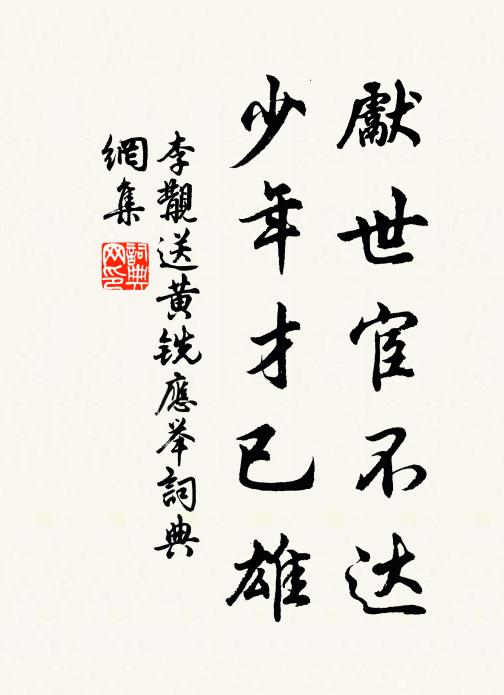 獻世宦不达
少年才已雄
李覯送黄铣應举詞典
網集
詞典
网印